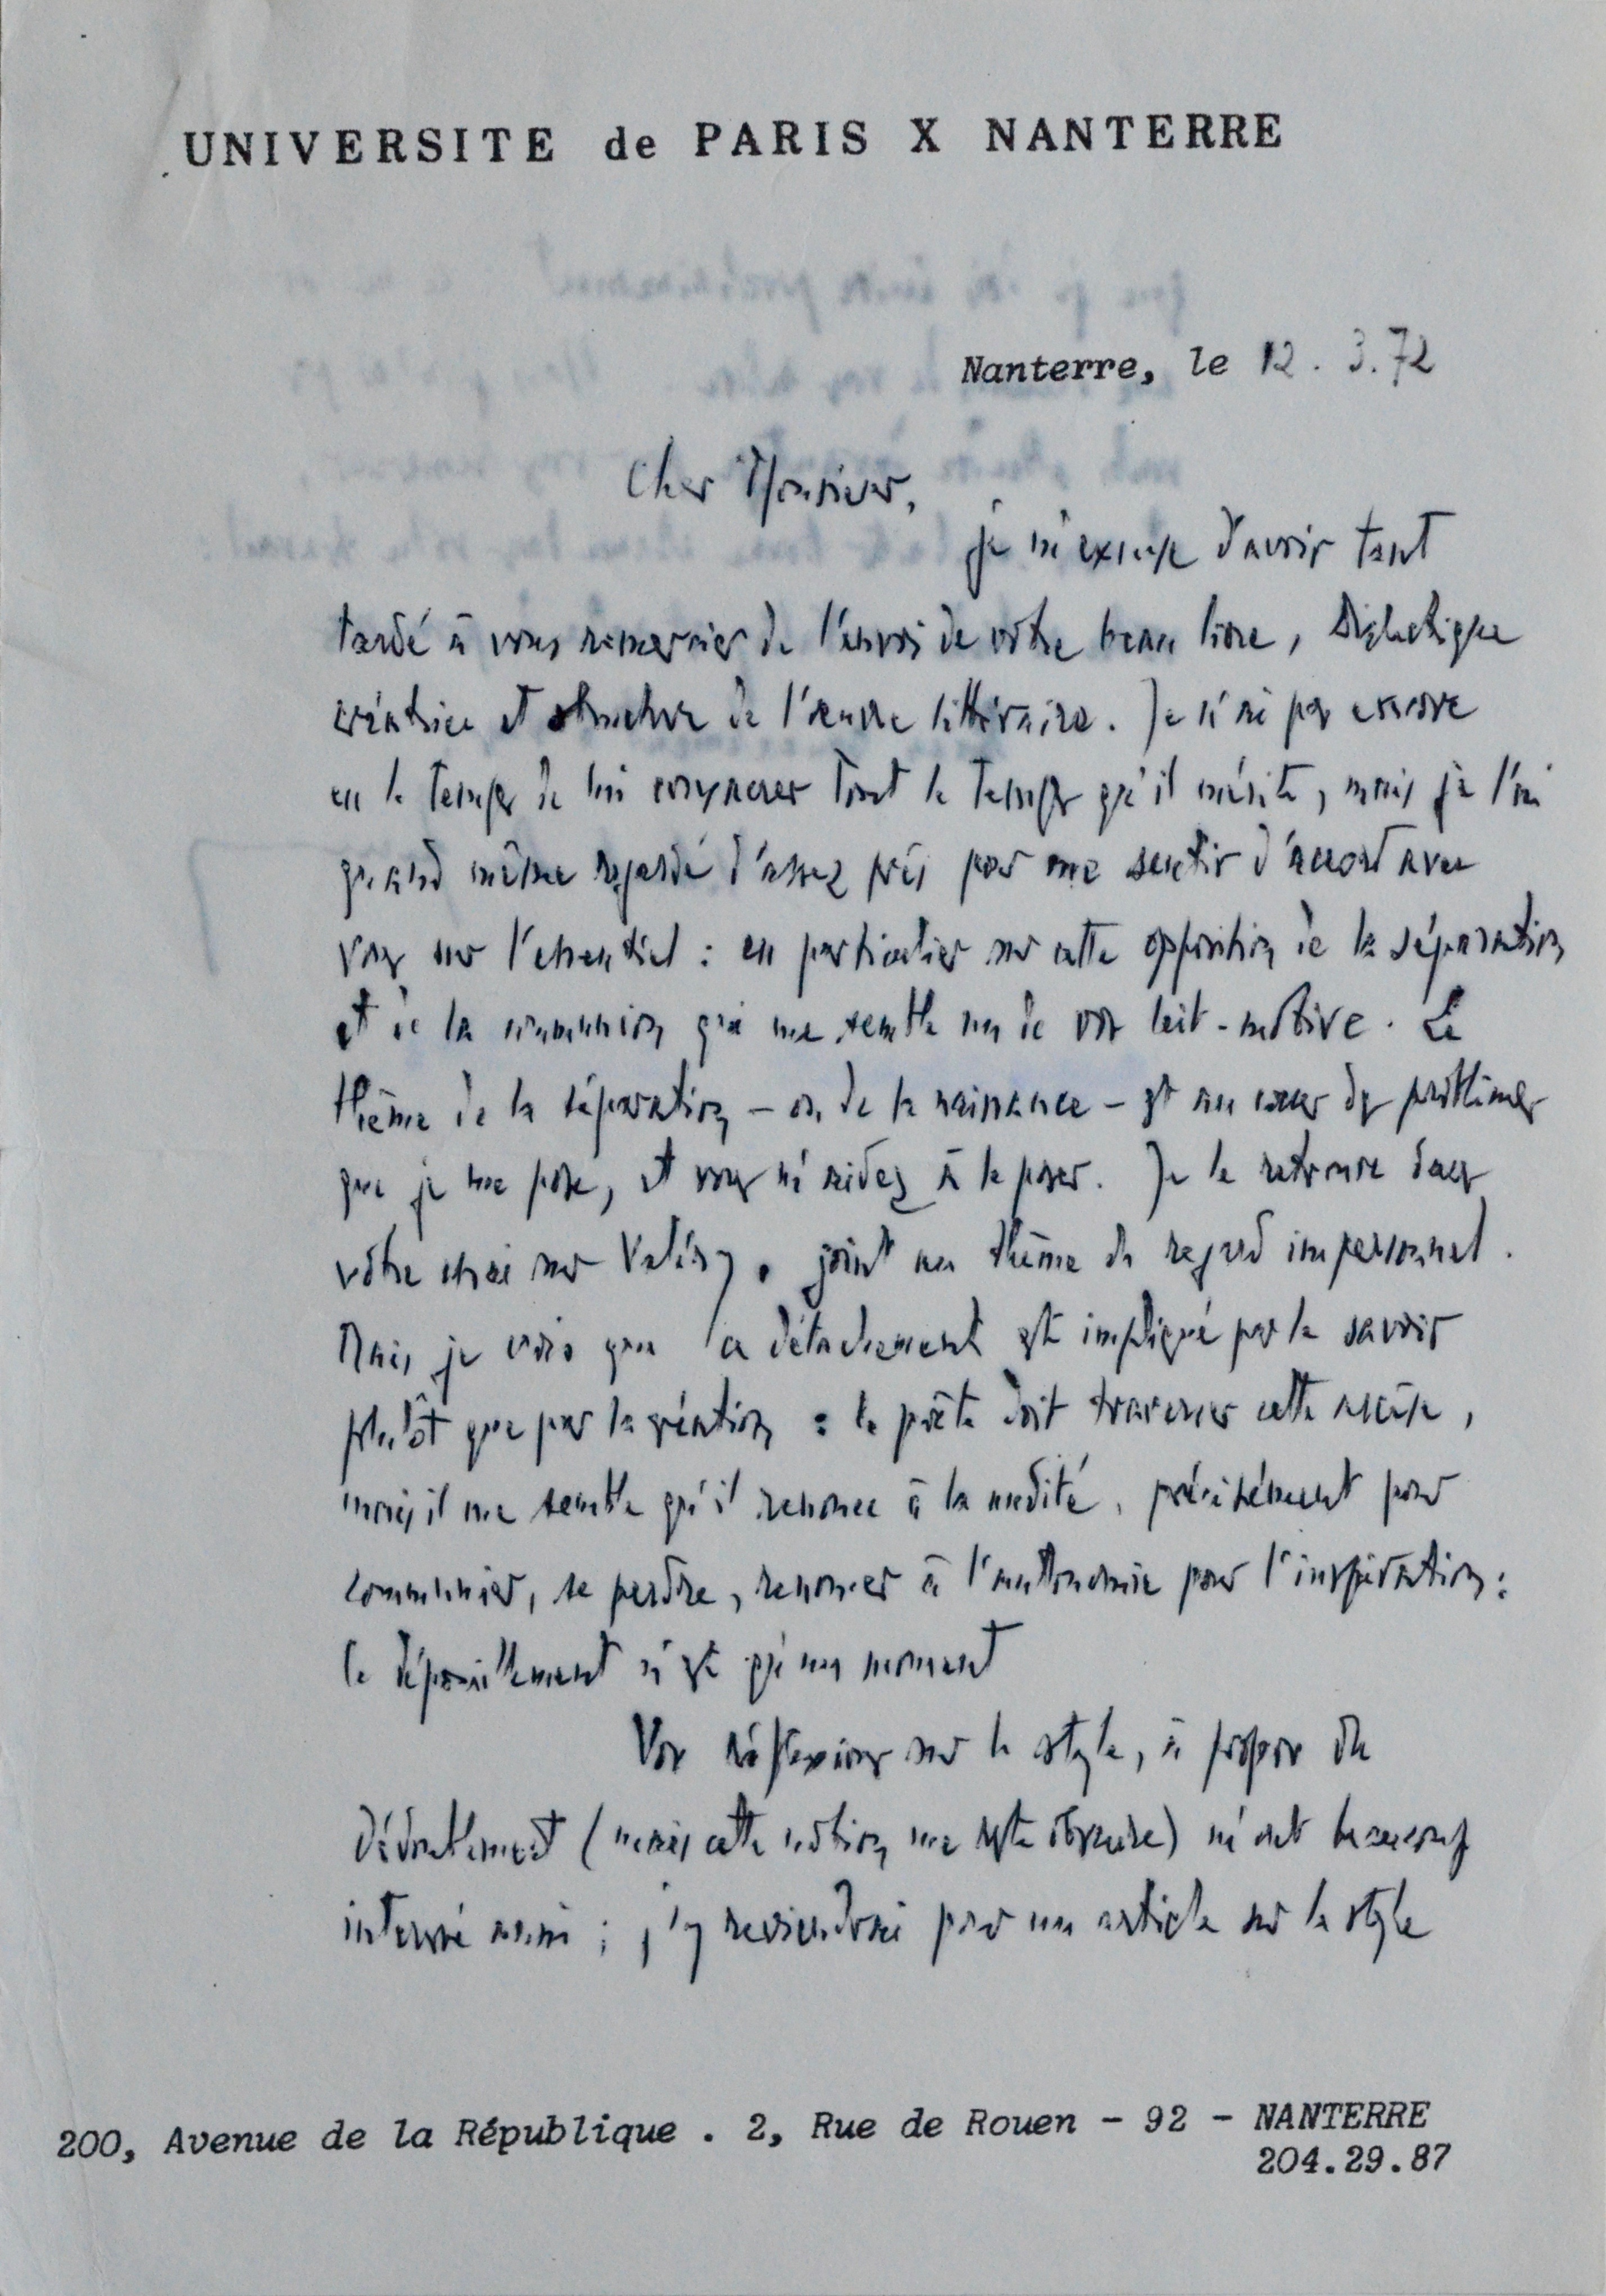 UNIVERSITE de PARIS X NANTERRE
Nanterre, le 12. 3.72
Cher Monsieur,
je m'excuse d'avoir tant
tardé à vous remercier de l'envoi de votre beau livre, Dialectique
créatrice et structure de l'œuvre littéraire. Je n'ai pas encore
eu le temps de lui consacrer tout le temps qu'il mérite, mais je l'ai
quand même regardé d'assez près pour me sentir d'accord avec
vous sur l'essentiel : en particulier sur cette opposition de la séparation
et de la communion qui me semble un de vos leit-motive. Le
thème de la séparation – ou de la naissance – est au cœur des problèmes
que je me pose, et vous m'aidez à le poser. Je le retrouve dans
votre essai sur Valéry, joint au thème du regard impersonnel.
Mais je crois que ce détachement est impliqué par le savoir
plutôt que par la création : le poète doit traverser cette ascèse,
mais il me semble qu'il renonce à la nudité, précisément pour
communier, se perdre, renoncer à l'autonomie pour l'inspiration :
le dépouillement n'est qu'un moment
Vos réflexions sur le style, à propos du
dédoublement (mais cette notion me reste obscure) m'ont beaucoup
intéressé aussi ; j'y reviendrai pour un article sur le style
200, Avenue de la République . 2, Rue de Rouen - 92 - NANTERRE
204.29.87